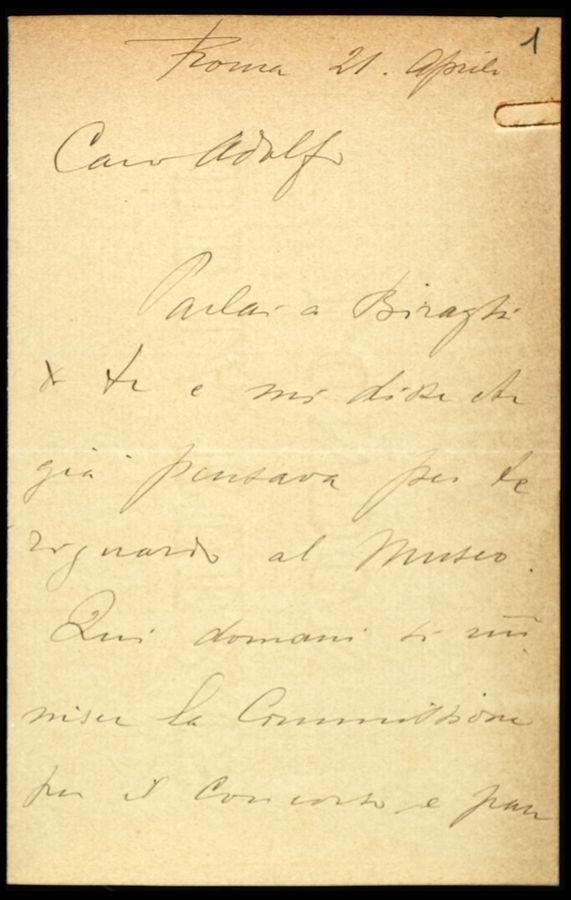 1
Roma 21. Aprile
Caro Adolfo
Parlai a Biraghi
x te e mi disse che
già pensava per te
riguardo al Museo.
Qui domani si riu
nisce la Commissione
per il Concorso e pare